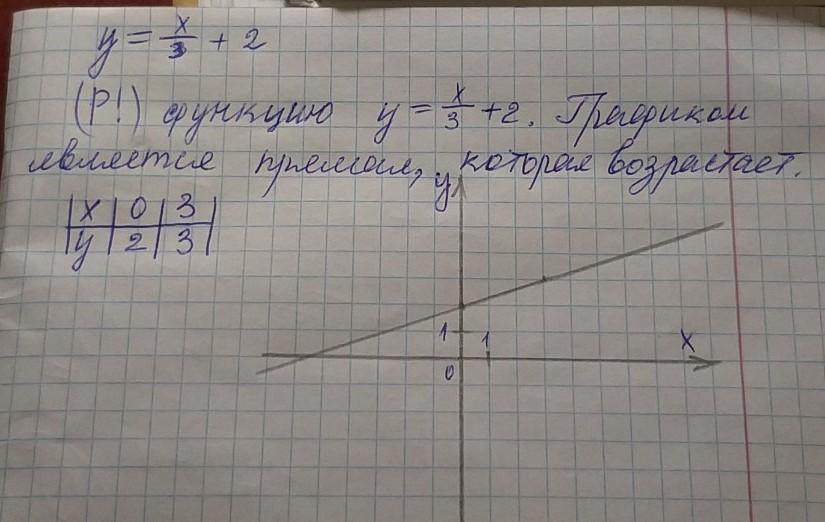 y = x/3 + 2
(Р!) функцию y = x/3 + 2. Графиком
является прямая, которая возрастает.
x 0 3
y 2 3
y
1 1 x
0